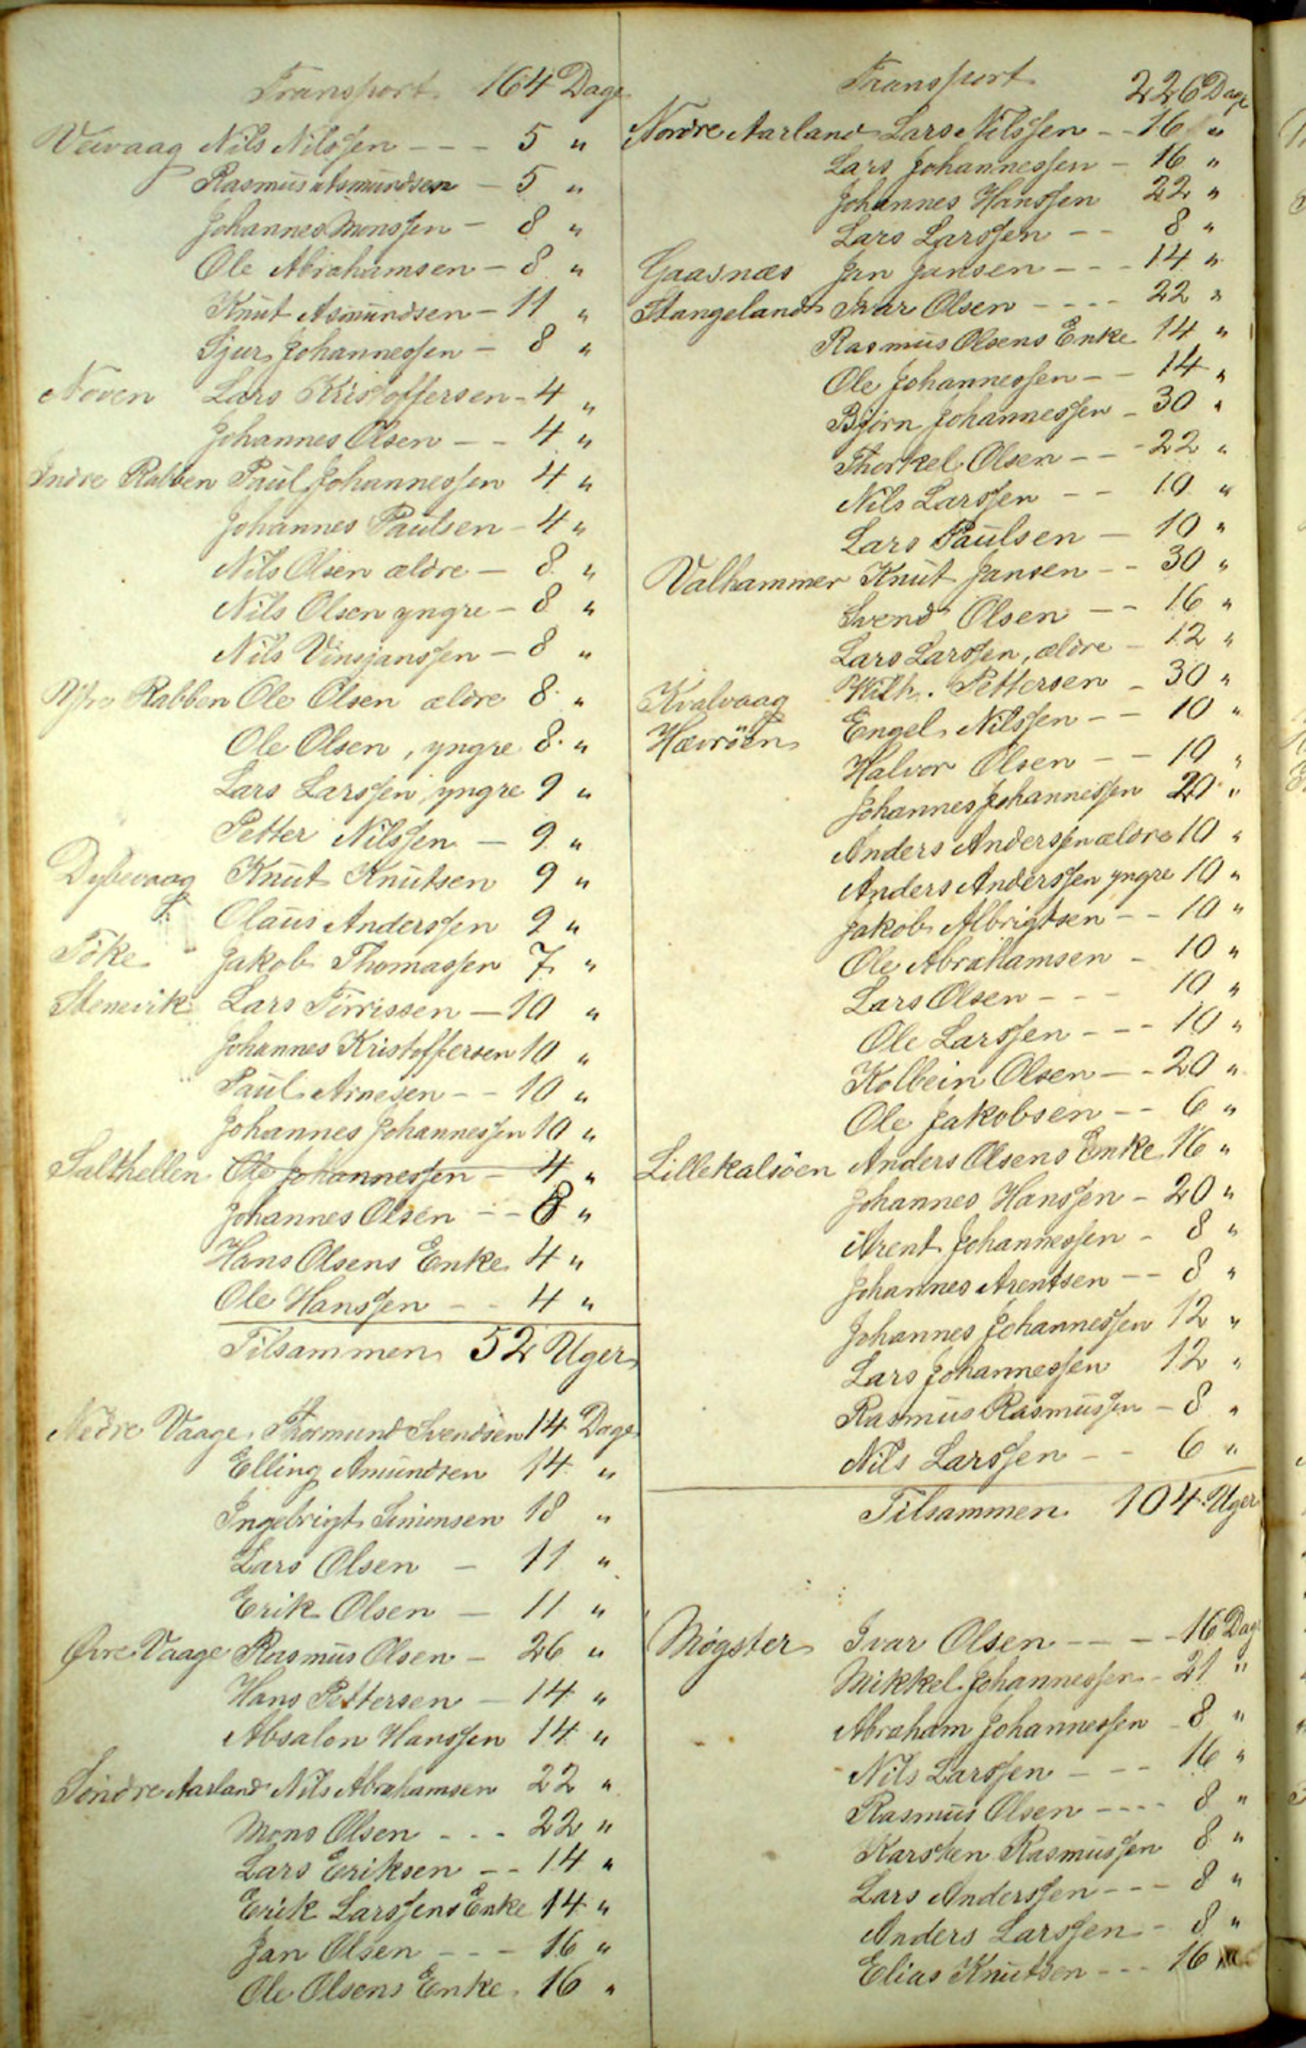 Transport 164 Dage
Veivaag Nils Nilssen - - - 5 "
Rasmus Asmundsen - 5 "
Johannes Monssen - 8 "
Ole Abrahamsen - 8 "
Knut Asmundsen - 11 "
Sjur Johannessen - 8 "
Noven Lars Kristoffersen - 4 "
Johannes Olsen - - 4 "
Indre Rabben Paul Johannessen 4 "
Johannes Paulsen - 4 "
Nils Olsen ældre - 8 "
Nils Olsen yngre - 8 "
Nils Vinsjanssen - 8 "
Ytre Rabben Ole Olsen ældre 8 "
Ole Olsen, yngre 8 "
Lars Larssen, yngre 9 "
Petter Nilssen - 9 "
Dybevaag Knut Knutsen 9 "
Olaus Anderssen 9 "
Töke Jakob Thomassen 7 "
Stenevik Lars Törrissen - 10 "
Johannes Kristoffersen 10 "
Paul Arnesen - - 10 "
Johannes Johannessen 10 "
Salthellen Ole Johannessen - 4 "
Johannes Olsen - - 8 "
Hans Olsens Enke 4 "
Ole Hanssen - - 4 "
Tilsammen 52 Uger
Nedre Vaage Thormund Svendsen 14 Dage
Elling Amundsen 14 "
Ingebrigt Simonsen 18 "
Lars Olsen - 11 "
Erik Olsen - 11 "
Øvre Vaage Rasmus Olsen - 26 "
Hans Pettersen - 14 "
Absalon Hanssen 14 "
Söndre Aarland Nils Abrahamsen 22 "
Mons Olsen - - - 22 "
Lars Eriksen - - 14 "
Erik Larssens Enke 14 "
Jan Olsen - - - 16 "
Ole Olsens Enke 16 "
Transport 226 Dage
Nordre Aarland Lars Nilssen - - 16 "
Lars Johannessen - 16 "
Johannes Hanssen 22 "
Lars Larssen - - 8 "
Gaasnæs Jan Jansen - - - 14 "
Stangeland Ivar Olsen - - - - 22 "
Rasmus Olsens Enke 14 "
Ole Johannessen - - 14 "
Björn Johannessen - 30 "
Thorkel Olsen - - - 22 "
Nils Larssen - - 10 "
Lars Paulsen - 10 "
Valhammer Knut Jansen - - 30 "
Svend Olsen - - 16 "
Lars Larssen, ældre - 12 "
Kvalvaag Wilh. Pettersen - 30 "
Hævröen Engel Nilssen - - 10 "
Halvor Olsen - - 10 "
Johannes Johannessen 20 "
Anders Anderssen ældre 10 "
Anders Anderssen yngre 10 "
Jakob Albrigtsen - - 10 "
Ole Abrahamsen - 10 "
Lars Olsen - - - 10 "
Ole Larssen - - - 10 "
Kolbein Olsen - - 20 "
Ole Jakobsen - - 6 "
Lillekalsöen Anders Olsens Enke 16 "
Johannes Hanssen - 20 "
Arent Johannessen - 8 "
Johannes Arentsen - - 8 "
Johannes Johannessen 12 "
Lars Johannessen 12 "
Rasmus Rasmussen - 8 "
Nils Larssen - - 6 "
Tilsammen 104 Uger
Møgster Ivar Olsen - - - - 16 Dag
Mikkel Johannessen - 21 "
Abraham Johannessen - 8 "
Nils Larssen - - - 16 "
Rasmus Olsen - - - - 8 "
Karsten Rasmussen 8 "
Lars Anderssen - - - 8 "
Anders Larssen - 8 "
Elias Knutsen - - - 16